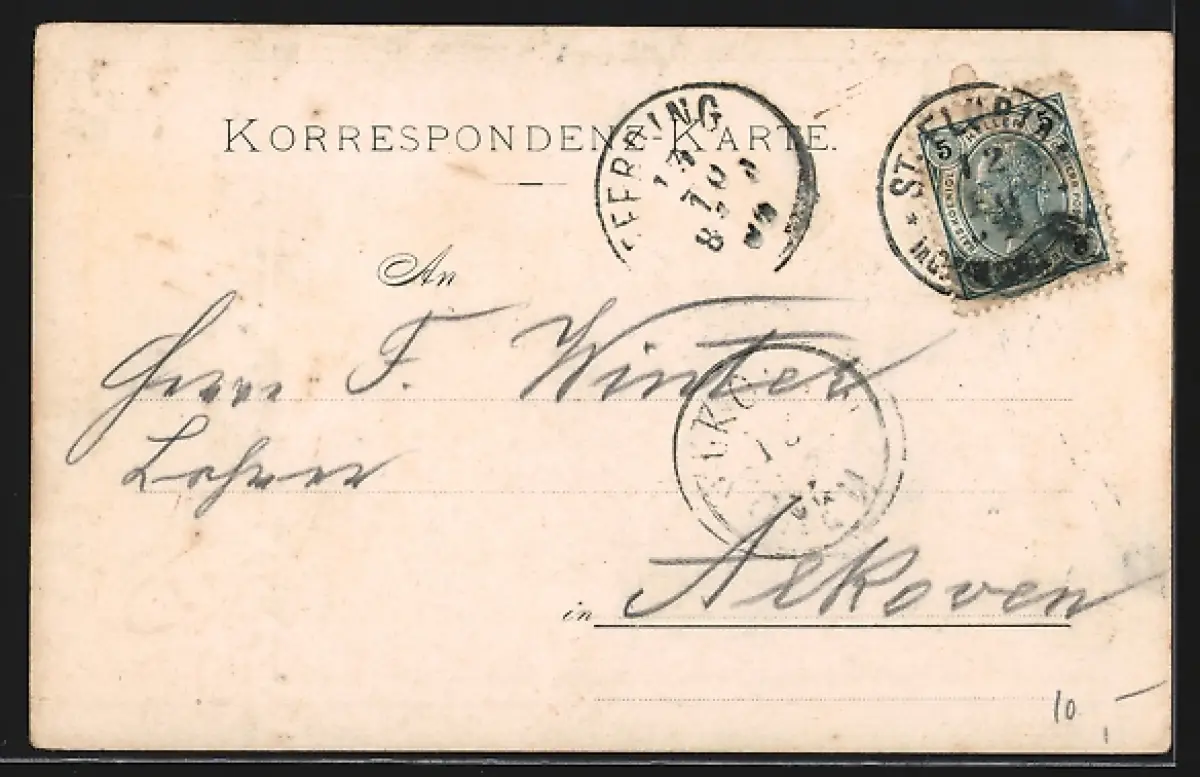 KORRESPONDENZ-KARTE.
EFERDING
13 10 8
ST.
12
5 HELLER
An
Herrn F. Winter
Lehrer
in Alkoven
10